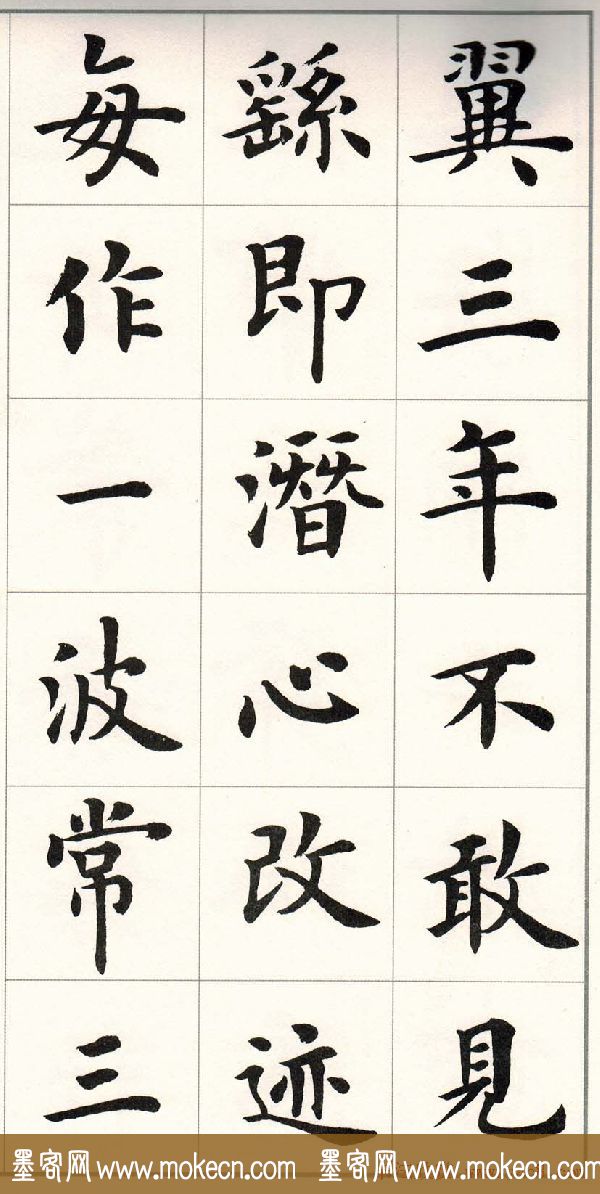 翼三年不敢見
繇即潛心改迹
每作一波常三
墨客网 www.mokecn.com 墨客网 www.mokecn.com